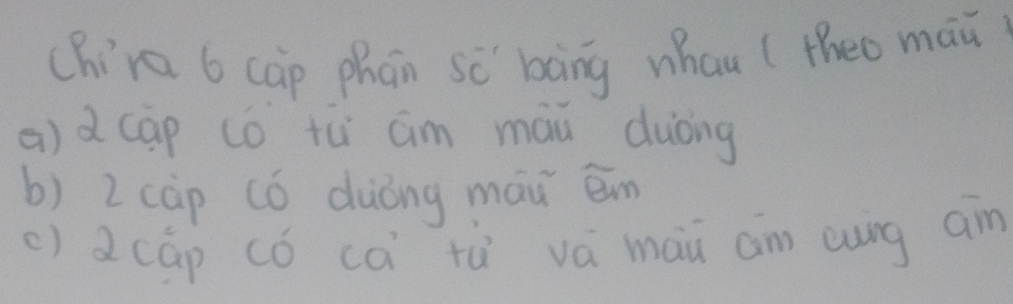 Chỉ ra 6 cặp phân số bằng nhau ( theo mẫu )
a) 2 cặp có tử âm mẫu dương
b) 2 cặp có dương mẫu âm
c) 2 cặp có cả tử và mẫu âm cùng âm